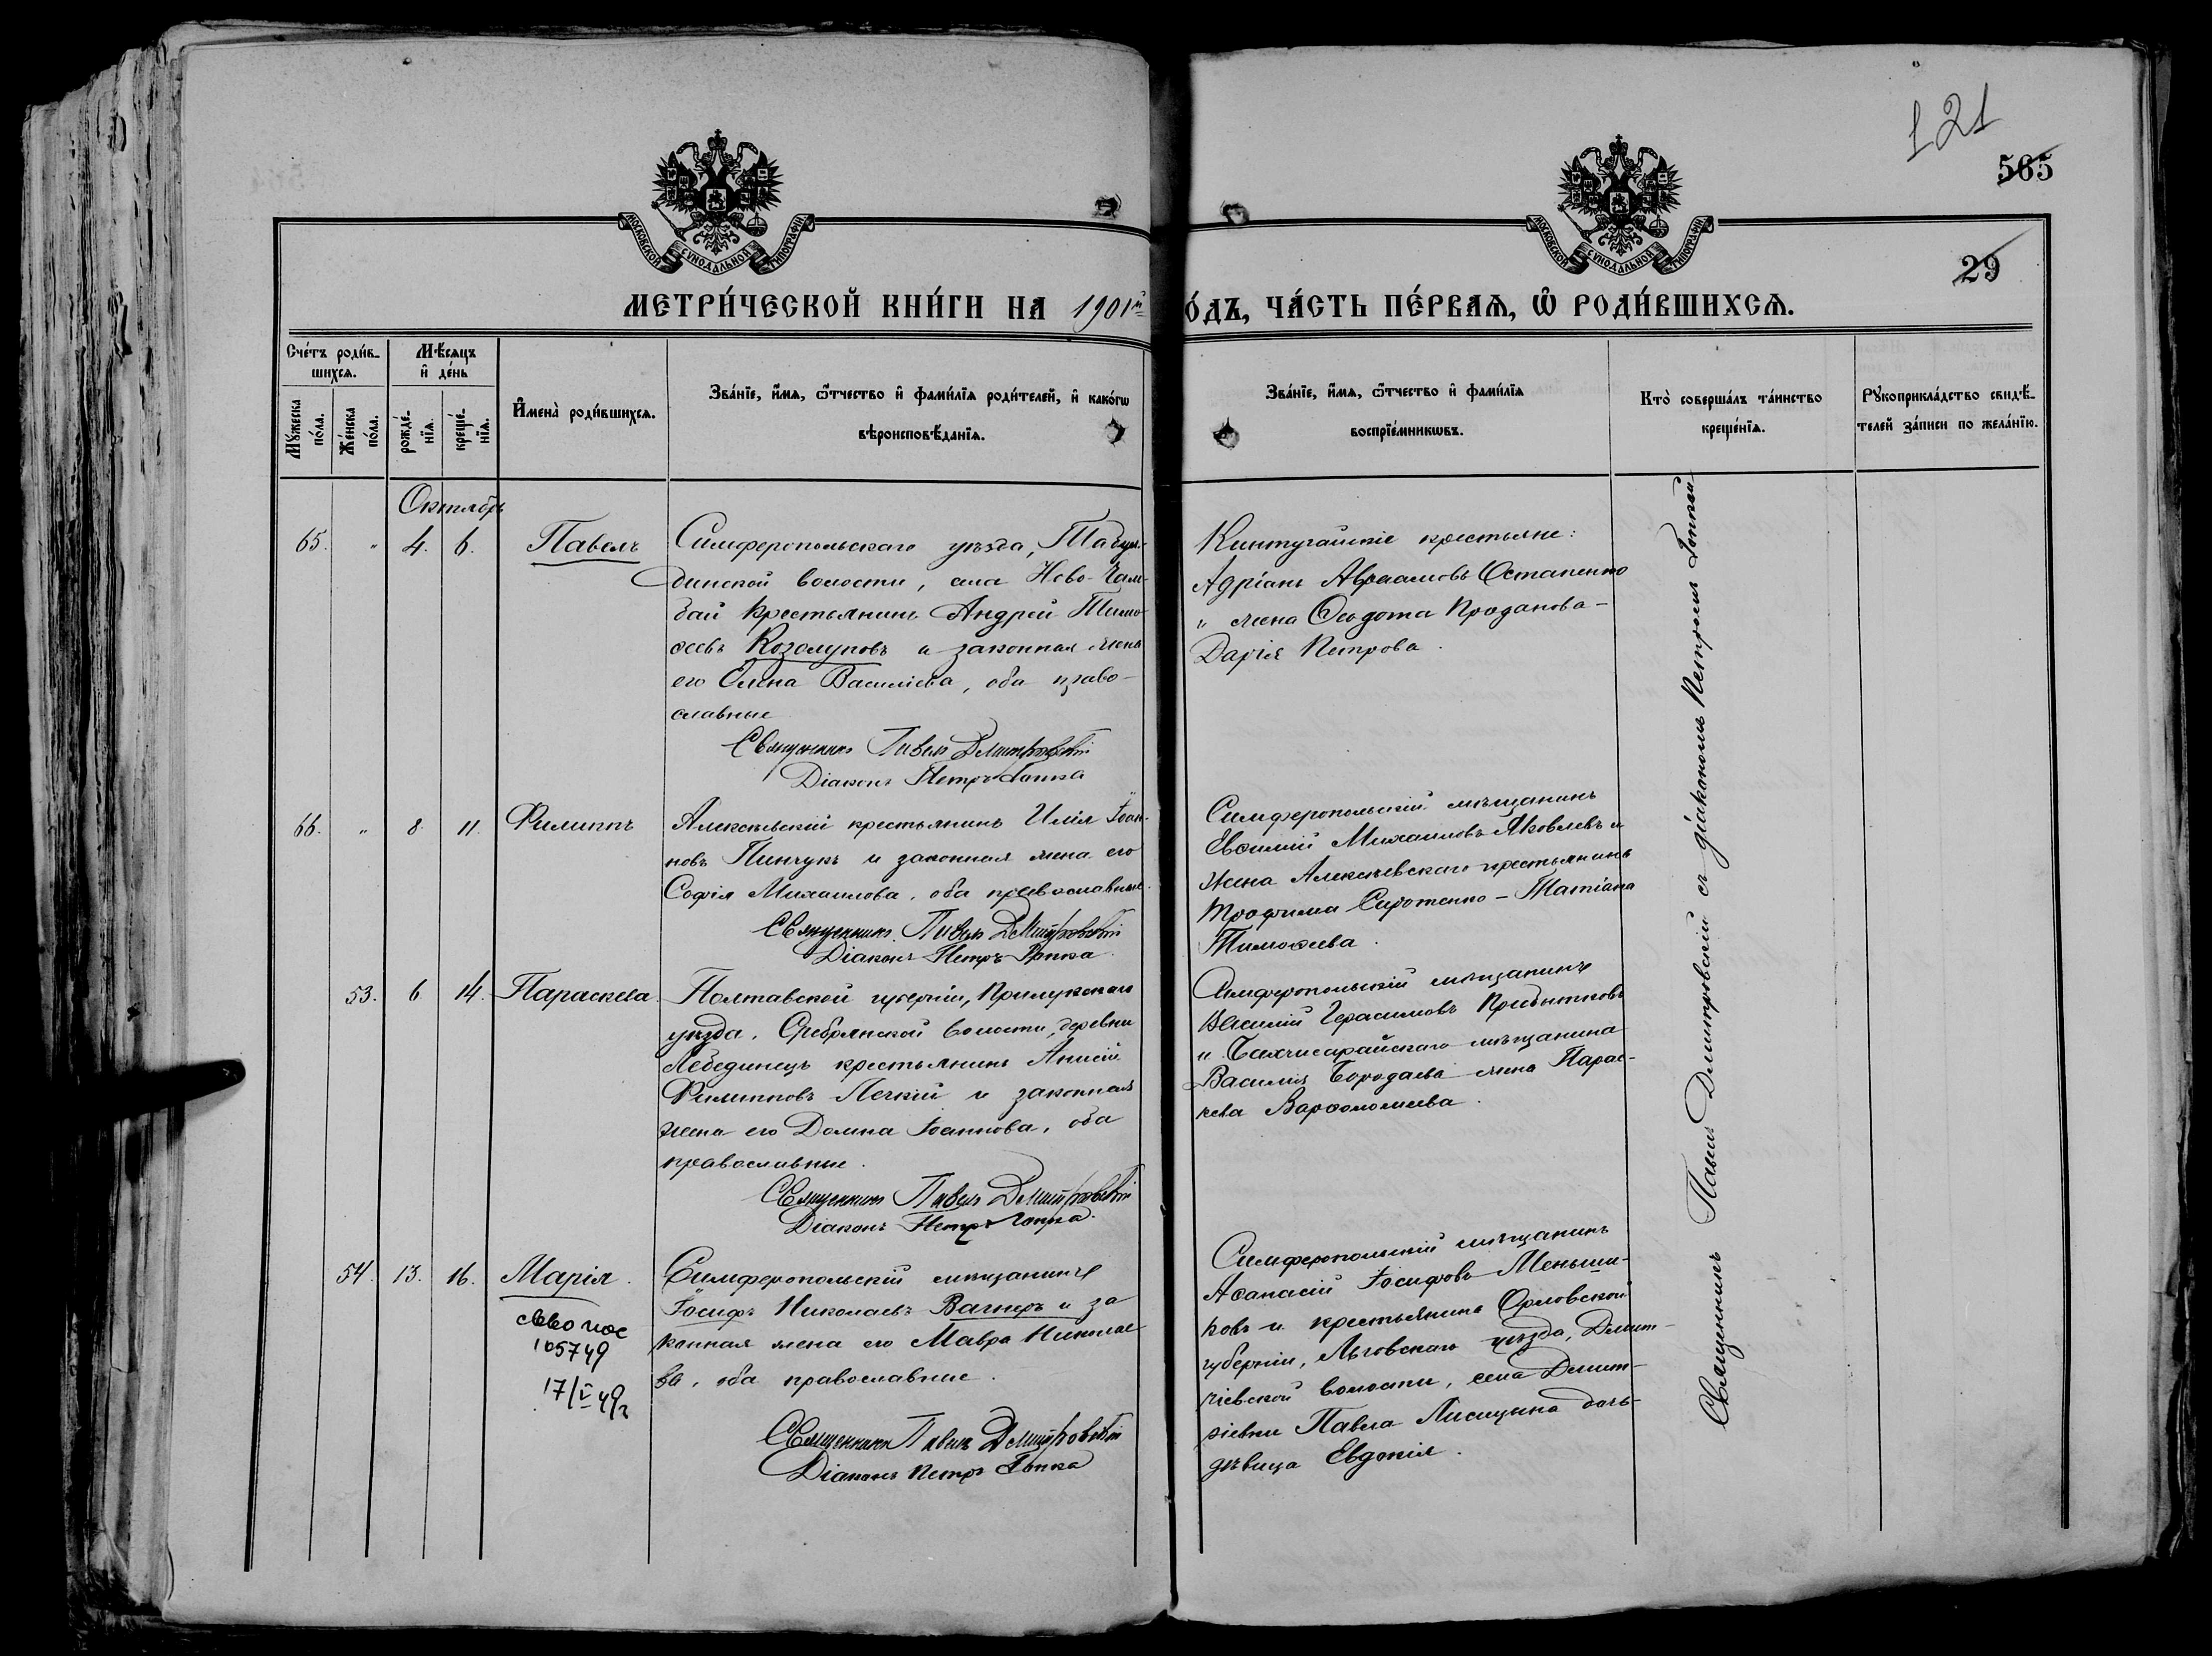 121
565
29
МОСКОВСКОЙ СУНОДАЛЬНОЙ ТИПОГРАФИИ
МОСКОВСКОЙ СУНОДАЛЬНОЙ ТИПОГРАФИИ
МЕТРИ́ЧЕСКОЙ КНИ́ГИ НА 1901й
О́ДЪ, ЧА́СТЬ ПЕ́РВАѦ, Ѿ РОДИ́ВШИХСѦ.
Сче́тъ роди́в-
шихсѧ.
Мꙋжеска по́ла.
Же́нска по́ла.
Мѣ́сяцъ
и҆ де́нь
рожде́-
нїѧ.
креще́-
нїѧ.
И҆мена̀ роди́вшихсѧ.
Зва́нїе, и҆́мѧ, ѻ҆́тчество и҆ фами́лїѧ роди́телей, и҆ како́гѡ
вѣроисповѣ́данїѧ.
Зва́нїе, и҆́мѧ, ѻ҆́тчество и҆ фами́лїѧ
воспрїе́мникѡвъ.
Кто̀ соверша́лъ та́инство
креще́нїѧ.
Рꙋкоприкла́дство свидѣ́-
телей за́писи по жела́нїю.
Октябрь
65. " 4. 6. Павелъ
Симферопольскаго уѣзда, Табул-
динской волости, села Ново-Чам-
бай крестьянинъ Андрей Тимо-
ѳеевъ Козолуповъ и законная жена
его Елена Василіева, оба право-
славные
Священникъ Павелъ Дмитровскій
Діаконъ Петръ Гопка
Кинтугайскіе крестьяне:
Адріанъ Авраамовъ Остапенко
и жена Ѳеодота Проданова-
Дарія Петрова.
66. " 8. 11. Филиппъ
Алексѣевскій крестьянинъ Илія Іоан-
новъ Пинчукъ и законная жена его
Софія Михаилова, оба православные.
Священникъ Павелъ Дмитровскій
Діаконъ Петръ Гопка
Симферопольскій мѣщанинъ
Евѳимій Михаиловъ Яковлевъ и
жена Алексѣевскаго крестьянина
Трофима Сиротенко - Татіана
Тимоѳеева.
53. 6. 14. Параскева
Полтавской губерніи, Прилукскаго
уѣзда, Сребрянской волости, деревни
Лебединецъ крестьянинъ Анисій
Филипповъ Легкій и законная
жена его Домна Іоаннова, оба
православные.
Священникъ Павелъ Дмитровскій
Діаконъ Петръ Гопка.
Симферопольскій мѣщанинъ
Василій Герасимовъ Прибытковъ
и Бахчисарайскаго мѣщанина
Василія Бородаева жена Парас-
кева Варѳоломеева.
54. 13. 16. Марія.
105749
17/I 49г
Симферопольскій мѣщанинъ
Іосифъ Николаевъ Вагнеръ и за
конная жена его Мавра Николае
ва, оба православные.
Священникъ Павелъ Дмитровскій
Діаконъ Петръ Гопка
Симферопольскій мѣщанинъ
Аѳанасій Іосифовъ Меньши-
ковъ и крестьянина Орловской
губерніи, уѣзда, Дмит-
ріевской волости, села Дмит-
ріевки Павла Лисицына дочь-
дѣвица Евдокія.
Священникъ Павелъ Дмитровскій съ діакономъ Петромъ Гопкой